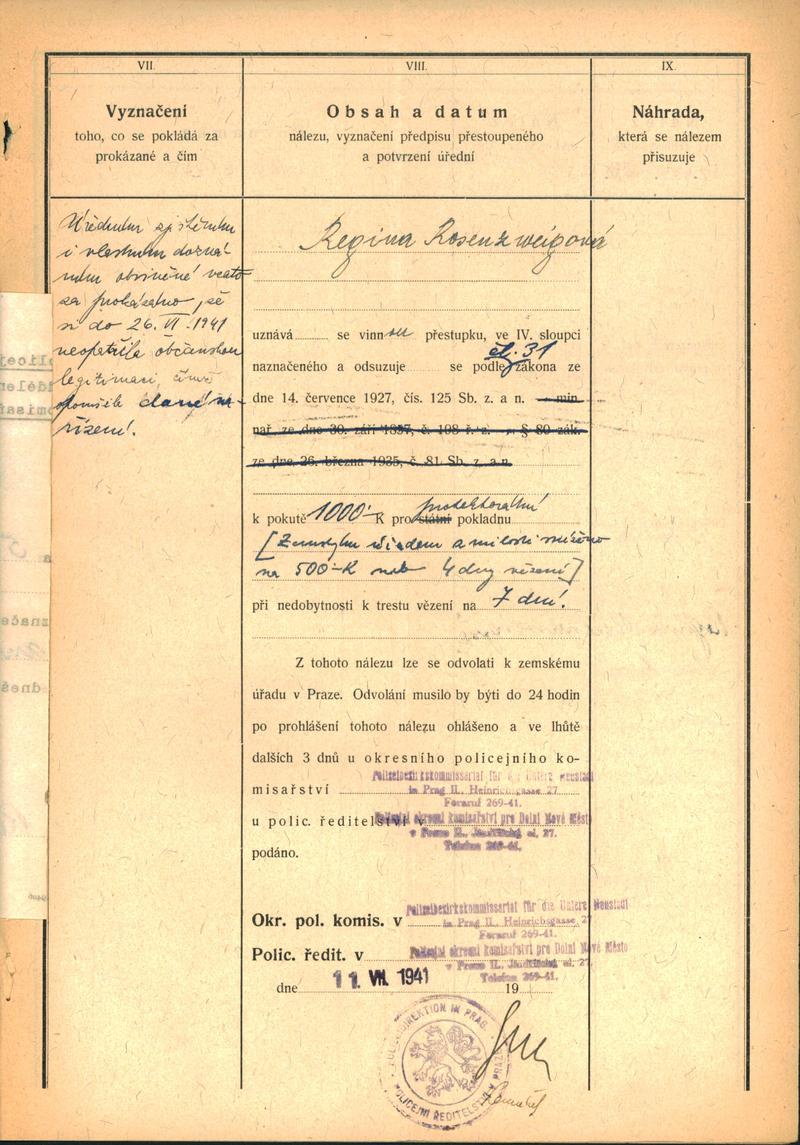 VII.
Vyznačení
toho, co se pokládá za
prokázané a čím
VIII.
Obsah a datum
nálezu, vyznačení předpisu přestoupeného
a potvrzení úřední
IX.
Náhrada,
která se nálezem
přisuzuje
Úředním zjištěním
i vlastním dozná-
ním obviněné vzato
za prokázáno, že
si do 26. VI. 1941
neopatřila občanskou
legitimaci, čímž
opomíjela dané na-
řízení.
Regina Rosenzweigová
uznává se vinnou přestupku, ve IV. sloupci
čl. 31
naznačeného a odsuzuje se podle zákona ze
dne 14. července 1927, čís. 125 Sb. z. a n. min.
nař. ze dne 30. září 1857, č. 198 ř. z. § 80 zák.
ze dne 26. března 1935, č. 81 Sb. z. a n.
protektorátní
k pokutě 1000·- K pro státní pokladnu
[Zemským úřadem z milosti sníženo
na 500·-K neb 4 dny vězení]
při nedobytnosti k trestu vězení na 7 dní.
Z tohoto nálezu lze se odvolati k zemskému
úřadu v Praze. Odvolání musilo by býti do 24 hodin
po prohlášení tohoto nálezu ohlášeno a ve lhůtě
dalších 3 dnů u okresního policejního ko-
misařství
Polizeibezirkskommissariat für die Untere Neustadt
in Prag II., Heinrichsgasse 27.
Fernruf 269-41.
u polic. ředitelství v
Policejní okresní komisařství pro Dolní Nové Město
v Praze II., Jindřišská ul. 27.
Telefon 269-41.
podáno.
Okr. pol. komis. v
Polizeibezirkskommissariat für die Untere Neustadt
in Prag II., Heinrichsgasse 27
Fernruf 269-41.
Polic. ředit. v
Policejní okresní komisařství pro Dolní Nové Město
v Praze II., Jindřišská ul. 27.
Telefon 269-41.
dne 11. VII. 1941 19
POLIZEIDIREKTION IN PRAG
POLICEJNÍ ŘEDITELSTVÍ V PRAZE